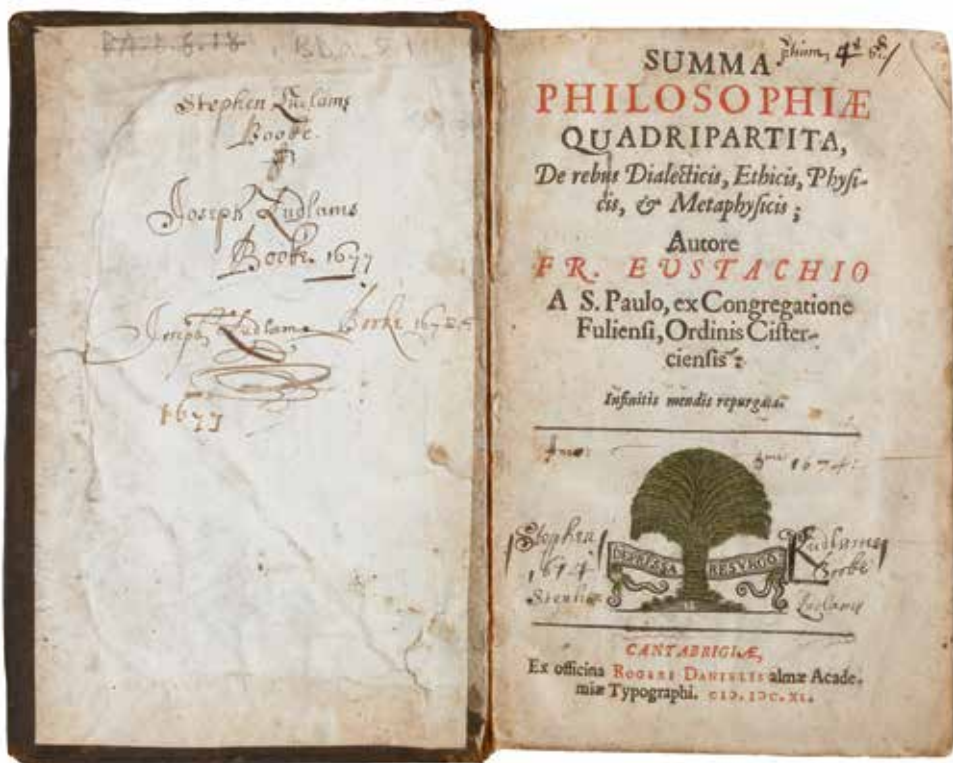 Stephen Ludlams
Booke.
Joseph Ludlams
Booke. 1677
Joseph Ludlams Booke
1677
SUMMA
PHILOSOPHIÆ
QUADRIPARTITA,
De rebus Dialecticis, Ethicis, Physi-
cis, & Metaphysicis;
Autore
FR. EUSTACHIO
A S. Paulo, ex Congregatione
Fuliensi, Ordinis Cister-
ciensis:
Infinitis mendis repurgata.
1674:
Stephen Ludlams
1674 Booke
DEPRESSA RESVRGO
Ludlams
CANTABRIGIÆ,
Ex officina ROGERI DANIELIS almæ Acade-
miæ Typographi. CIↃ.IↃC.XL.